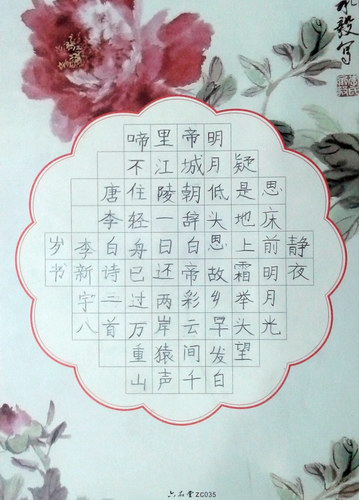 静夜
思床前明月光
疑是地上霜举头望
明月低头思故乡早发白
帝城朝辞白帝彩云间千
里江陵一日还两岸猿声
啼不住轻舟已过万重山
唐李白诗二首
李新宇八
岁书
六品堂 ZC035